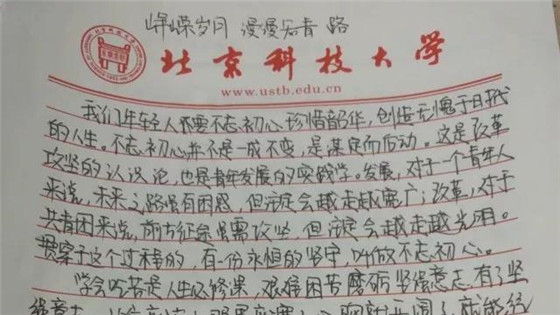 峥嵘岁月 漫漫知青路
北京科技大学
www.ustb.edu.cn
我们年轻人要不忘初心珍惜韶华，创造无愧于时代
的人生。不忘初心并不是一成不变，是谋定而后动。这是改革
攻坚的认识论，也是青年发展的实践学。发展，对于一个青年人
来说，未来之路虽有困惑，但注定会越走越宽广；改革，对于
共青团来说，前方征途虽需攻坚，但注定会越走越光明。
贯穿于这个过程的 有一份永恒的坚守，叫做不忘初心。
学会吃苦是人生必修课 艰难困苦磨砺坚强意志，有了坚
强意志